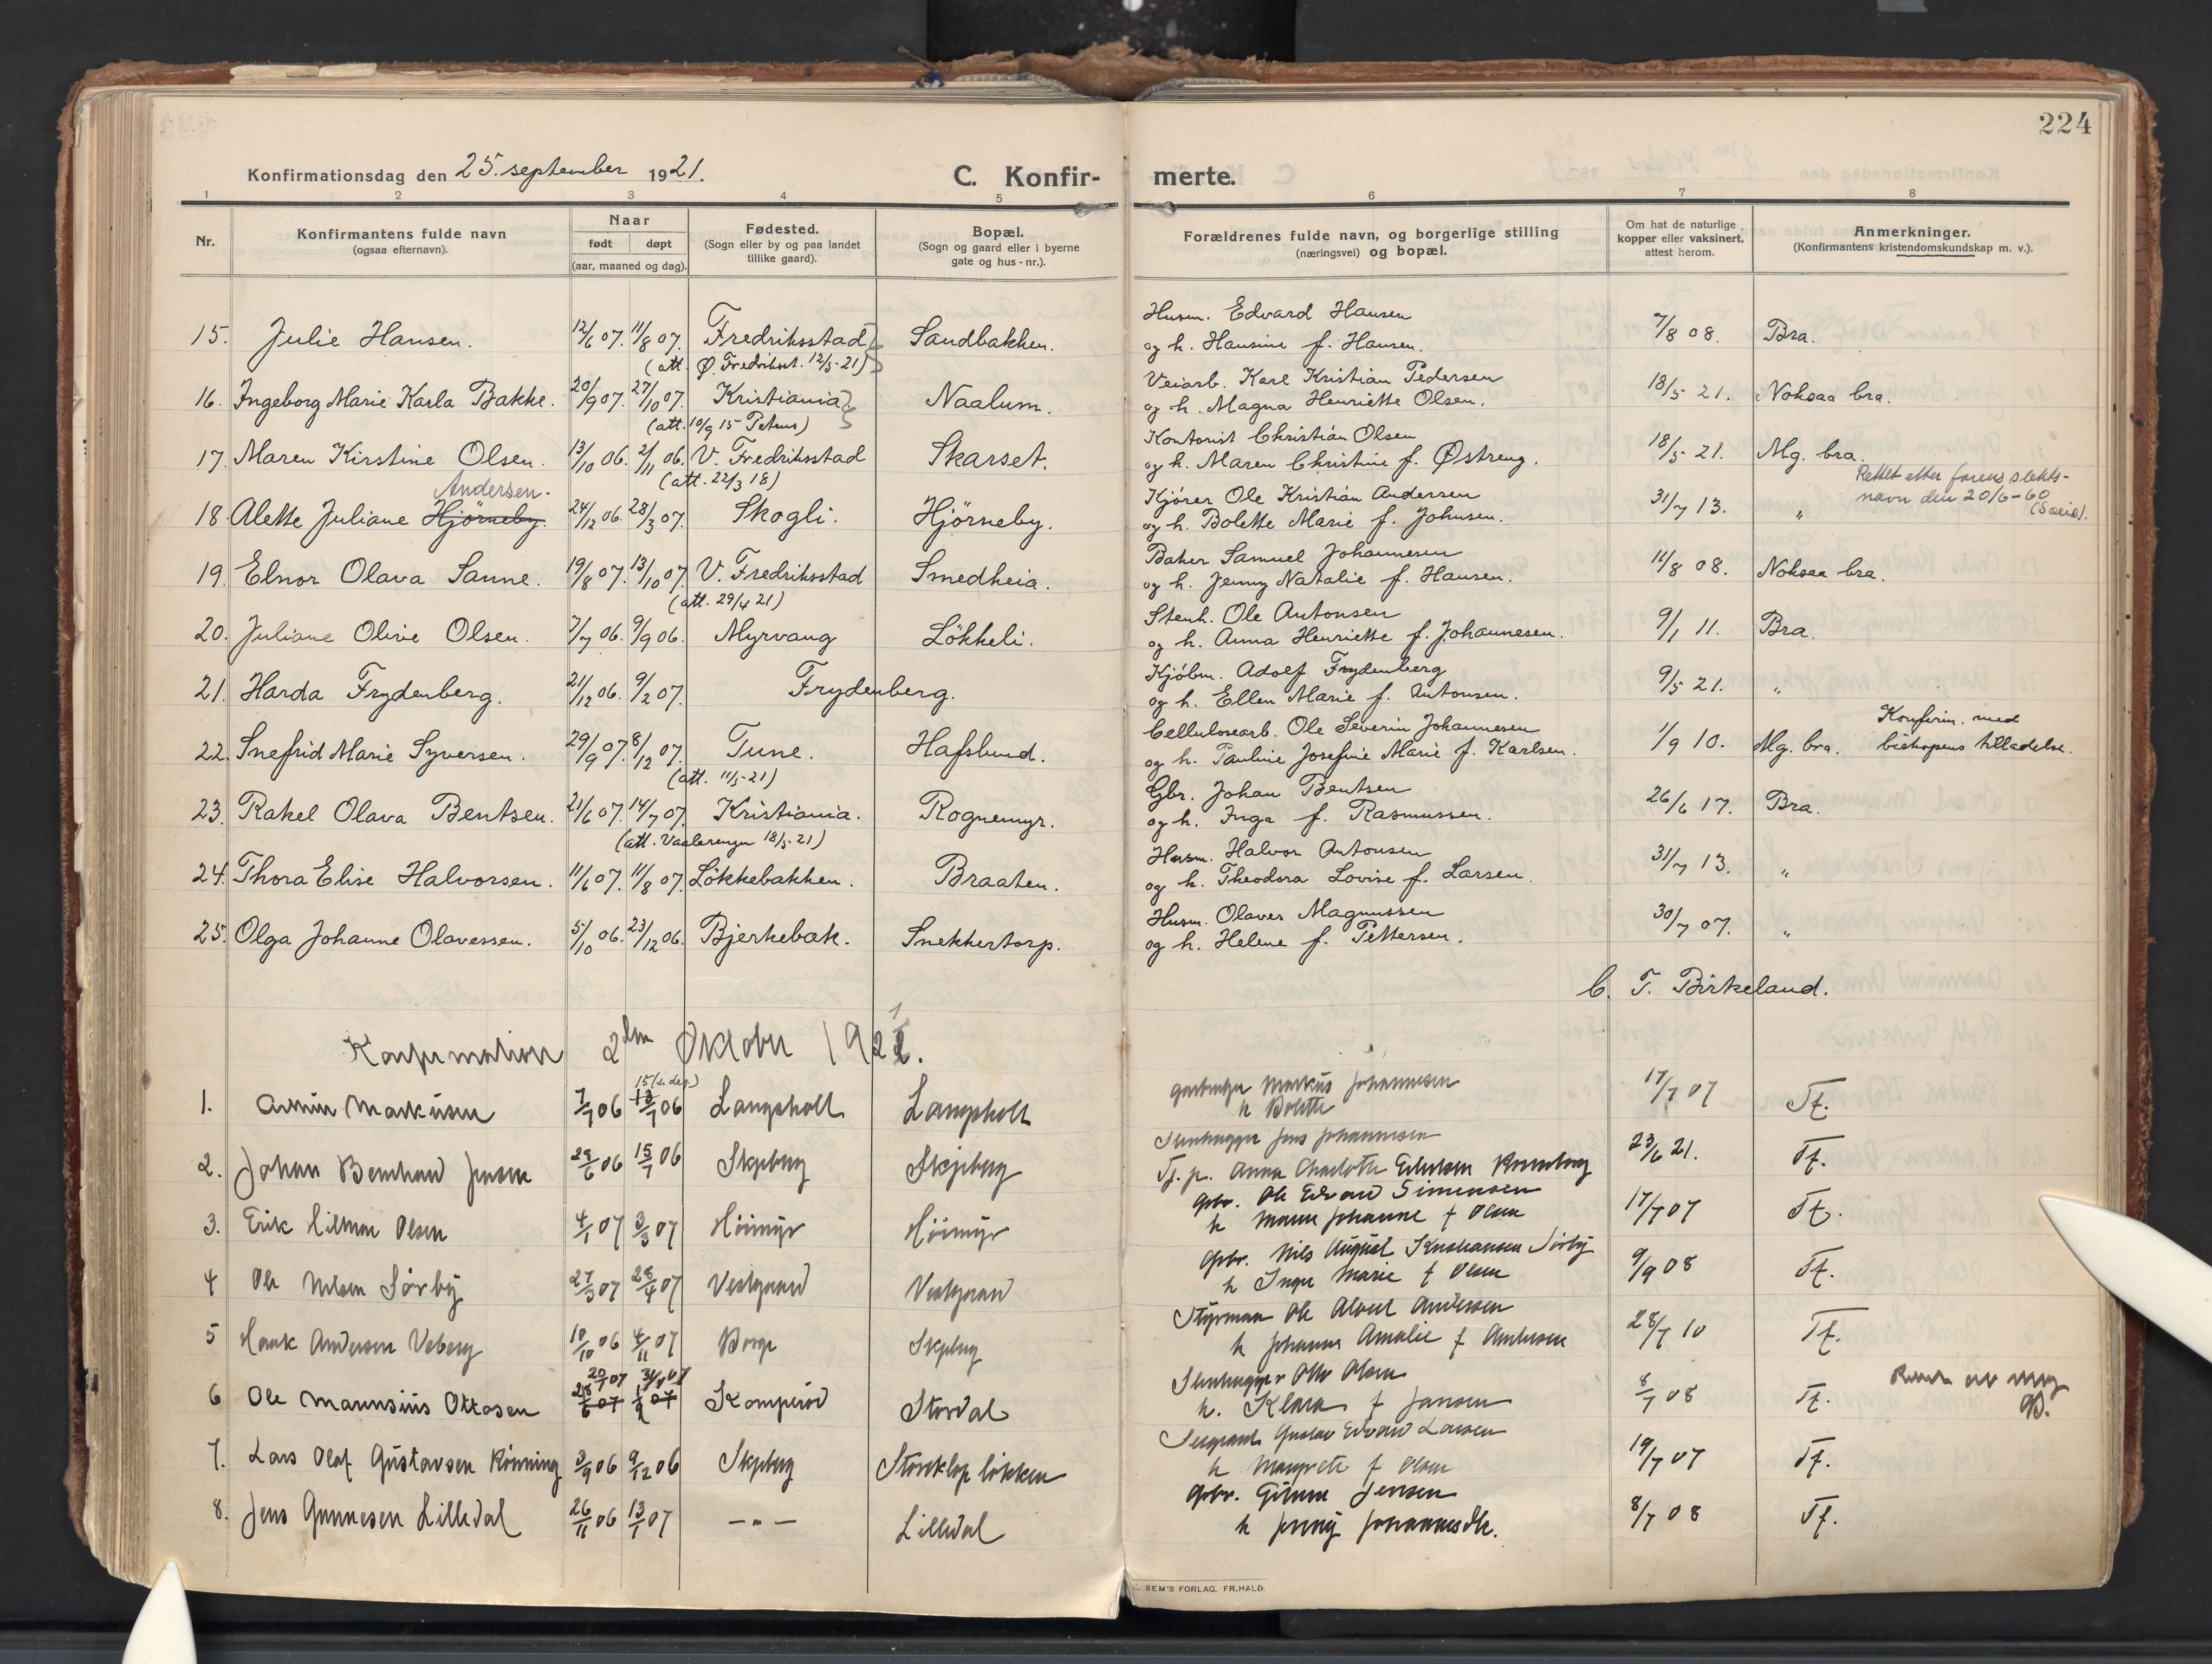 224
Konfirmationsdag den 25. september 1921.
C. Konfir- merte.
1 2 3 4 5 6 7 8
Nr.
Konfirmantens fulde navn
(ogsaa efternavn).
Naar
født døpt
(aar, maaned og dag).
Fødested.
(Sogn eller by og paa landet
tillike gaard).
Bopæl.
(Sogn og gaard eller i byerne
gate og hus-nr.).
Forældrenes fulde navn, og borgerlige stilling
(næringsvei) og bopæl.
Om hat de naturlige
kopper eller vaksinert,
attest herom.
Anmerkninger.
(Konfirmantens kristendomskundskap m. v.).
15. Julie Hansen. 12/6 07. 11/8 07. Fredriksstad Sandbakken. Husm. Edvard Hansen
og h. Hansine f. Hansen. 7/8 08. Bra.
(att. Ø. Fredriksst. 12/5-21)
16. Ingeborg Marie Karla Bakke. 20/9 07. 27/10 07. Kristiania Naalum. Veiarb. Karl Kristian Pedersen
og h. Magna Henriette Olsen. 18/5 21. Noksaa bra.
(att. 10/9 15 Petrus)
17. Maren Kirstine Olsen. 13/10 06. 2/11 06. V. Fredriksstad Skarset. Kontorist Christian Olsen
og h. Maren Christine f. Østreng. 18/5 21. Mg. bra.
(att. 22/3 18)
Andersen.
18. Alette Juliane Hjörneby. 24/12 06. 28/3 07. Skogli. Hjörneby. Kjörer Ole Kristian Andersen
og h. Bolette Marie f. Johnsen. 31/7 13. „
Rettet etter farens slekts-
navn den 20/6-60
19. Elnor Olava Sanne. 19/8 07. 13/10 07. V. Fredriksstad Smedheia. Baker Samuel Johannesen
og h. Jenny Natalie f. Hansen. 11/8 08. Noksaa bra.
(att. 29/4 21)
20. Juliane Olivie Olsen. 7/7 06. 9/9 06. Myrvang Lökkeli. Stenh. Ole Antonsen
og h. Anna Henriette f. Johannesen. 9/1 11. Bra.
21. Harda Frydenberg. 21/12 06. 9/2 07. Frydenberg. Kjöbm. Adolf Frydenberg
og h. Ellen Marie f. Antonsen. 9/5 21. „
22. Snefrid Marie Syversen. 29/9 07. 8/12 07. Tune. Hafslund. Cellulosearb. Ole Severin Johannesen
og h. Pauline Josefine Marie f. Karlsen. 1/9 10. Mg. bra. Konfirm. med
biskopens tilladelse.
(att. 11/5-21)
23. Rakel Olava Bentsen. 21/6 07. 14/7 07. Kristiania. Rognemyr. Gbr. Johan Bentsen
og h. Inga f. Rasmussen. 26/6 17. Bra.
(att. Vaalerengen 18/5-21)
24. Thora Elise Halvorsen. 11/6 07. 11/8 07. Lökkebakken. Braaten. Husm. Halvor Antonsen
og h. Theodora Lovise f. Larsen. 31/7 13. „
25. Olga Johanne Olavessen. 5/10 06. 23/12 06. Bjerkebæk. Snekkertorp. Husm. Olaves Magnussen
og h. Helene f. Pettersen. 30/7 07. „
C. T. Birkeland.
Konfirmation 2den Oktober 1921.
1. Armin Markusen 7/7 06 15/7 06 Langsholt Langsholt Markus Johannesen
h Bolette 17/7 07 Tf.
2. Johan Bernhard Jensen 29/6 06 15/7 06 Skjeberg Skjeberg Stenhugger Jens Johannesen
Tj. p. Anna Charlotte 23/6 21. Tf.
3. Erik Hilmar Olsen 4/1 07 3/3 07 Höimyr Höimyr Gbr. Ole Edvard Simensen
h Maren Johanne f Olsen 17/7 07 Tf.
4 Ole Nilsen Sörby 27/3 07 28/4 07 Vestgaard Vestgaard Gbr. Nils August Kristiansen Sörby
h Inga Marie f Olsen 9/9 08 Tf.
5 Hauk Andersen Veberg 10/10 06 4/11 07 Borge Skjeberg Styrman Ole Alvet Andersen
h Johanna Amalie f Andersen 28/7 10 Tf.
6 Ole Mannsius Ottosen Kamperöd Stordal Stenhugger Otto Olsen
h. Klara f Jansen 8/7 08 Tf.
7. Lars Olaf Gustavsen Rönning 3/9 06 9/12 06 Skjeberg Storeklop lökken Sergeant Gustav Edvard Larsen
h Margrete f Olsen 19/7 07 Tf.
8. Jens Gunnesen Lilledal 26/11 06 13/1 07 —„— Lilledal Gbr. Gunne Jensen
h Jenny Johannesdtr. 8/7 08 Tf.
SEM'S FORLAG, FR.HALD.